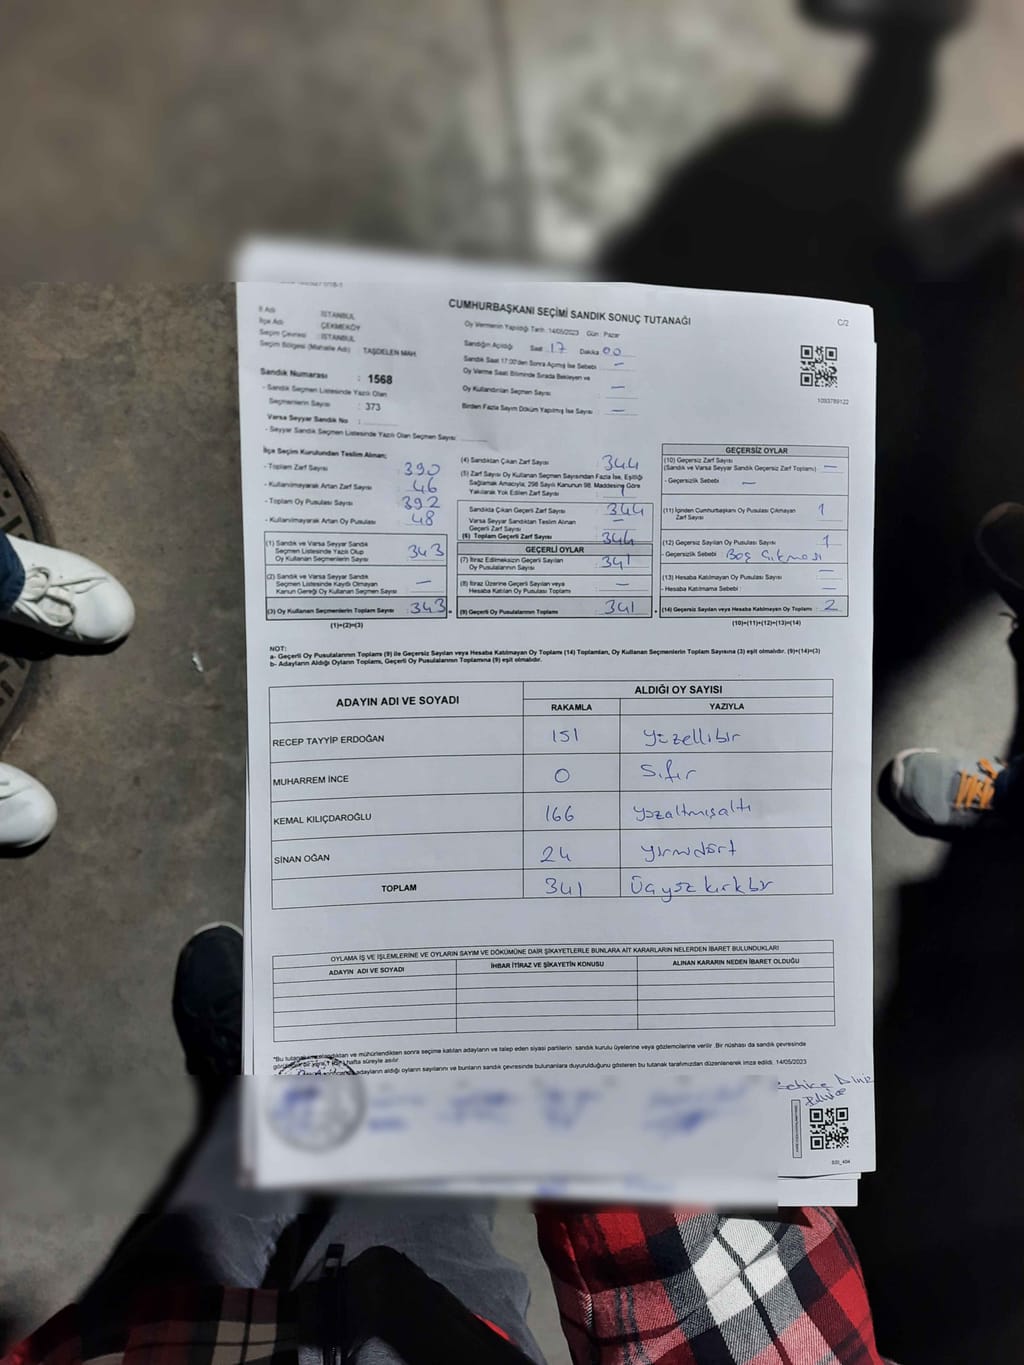 CUMHURBAŞKANI SEÇİMİ SANDIK SONUÇ TUTANAĞI
C/2
İl Adı : İSTANBUL
İlçe Adı : ÇEKMEKÖY
Seçim Çevresi : İSTANBUL
Seçim Bölgesi (Mahalle Adı) : TAŞDELEN MAH.
Oy Vermenin Yapıldığı Tarih :14/05/2023 Gün : Pazar
Sandığın Açıldığı Saat 17 Dakika 00
Sandık Saat 17:00'den Sonra Açılmış İse Sebebi : —
Oy Verme Saati Bitiminde Sırada Bekleyen ve
Oy Kullandırılan Seçmen Sayısı : —
Birden Fazla Sayım Döküm Yapılmış İse Sayısı : —
1093789122
Sandık Numarası : 1568
- Sandık Seçmen Listesinde Yazılı Olan
Seçmenlerin Sayısı : 373
Varsa Seyyar Sandık No :
- Seyyar Sandık Seçmen Listesinde Yazılı Olan Seçmen Sayısı:
İlçe Seçim Kurulundan Teslim Alınan;
- Toplam Zarf Sayısı : 390
- Kullanılmayarak Artan Zarf Sayısı : 46
- Toplam Oy Pusulası Sayısı : 392
- Kullanılmayarak Artan Oy Pusulası : 48
(1) Sandık ve Varsa Seyyar Sandık
Seçmen Listesinde Yazılı Olup
Oy Kullanan Seçmenlerin Sayısı : 343
(2) Sandık ve Varsa Seyyar Sandık
Seçmen Listesinde Kaydı Olmayan
Kanun Gereği Oy Kullanan Seçmen Sayısı : —
(3) Oy Kullanan Seçmenlerin Toplam Sayısı : 343 =
(1)+(2)=(3)
(4) Sandıktan Çıkan Zarf Sayısı : 344
(5) Zarf Sayısı Oy Kullanan Seçmen Sayısından Fazla İse, Eşitliği
Sağlamak Amacıyla, 298 Sayılı Kanunun 98. Maddesine Göre
Yakılarak Yok Edilen Zarf Sayısı : 1
Sandıkta Çıkan Geçerli Zarf Sayısı : 344
Varsa Seyyar Sandıktan Teslim Alınan
Geçerli Zarf Sayısı : —
(6) Toplam Geçerli Zarf Sayısı : 344
GEÇERLİ OYLAR
(7) İtiraz Edilmeksizin Geçerli Sayılan
Oy Pusulalarının Sayısı : 341
(8) İtiraz Üzerine Geçerli Sayılan veya
Hesaba Katılan Oy Pusulası Toplamı : —
(9) Geçerli Oy Pusulalarının Toplamı : 341 +
GEÇERSİZ OYLAR
(10) Geçersiz Zarf Sayısı
(Sandık ve Varsa Seyyar Sandık Geçersiz Zarf Toplamı) : —
- Geçersizlik Sebebi : —
(11) İçinden Cumhurbaşkanı Oy Pusulası Çıkmayan
Zarf Sayısı : 1
(12) Geçersiz Sayılan Oy Pusulası Sayısı : 1
- Geçersizlik Sebebi : Boş Çıkması
(13) Hesaba Katılmayan Oy Pusulası Sayısı : —
- Hesaba Katılmama Sebebi : —
(14) Geçersiz Sayılan veya Hesaba Katılmayan Oy Toplamı : 2
(10)+(11)+(12)+(13)=(14)
NOT:
a- Geçerli Oy Pusulalarının Toplamı (9) ile Geçersiz Sayılan veya Hesaba Katılmayan Oy Toplamı (14) Toplamları, Oy Kullanan Seçmenlerin Toplam Sayısına (3) eşit olmalıdır. (9)+(14)=(3)
b- Adayların Aldığı Oyların Toplamı, Geçerli Oy Pusulalarının Toplamına (9) eşit olmalıdır.
ADAYIN ADI VE SOYADI ALDIĞI OY SAYISI
RAKAMLA YAZIYLA
RECEP TAYYİP ERDOĞAN 151 yüzellibir
MUHARREM İNCE 0 Sıfır
KEMAL KILIÇDAROĞLU 166 yüzaltmışaltı
SİNAN OĞAN 24 yirmidört
TOPLAM 341 Üçyüz kırkbir
OYLAMA İŞ VE İŞLEMLERİNE VE OYLARIN SAYIM VE DÖKÜMÜNE DAİR ŞİKAYETLERLE BUNLARA AİT KARARLARIN NELERDEN İBARET BULUNDUKLARI
ADAYIN ADI VE SOYADI İHBAR İTİRAZ VE ŞİKAYETİN KONUSU ALINAN KARARIN NEDEN İBARET OLDUĞU
ve mühürlendikten sonra seçime katılan adayların ve talep eden siyasi partilerin sandık kurulu üyelerine veya gözlemcilerine verilir. Bir nüshası da sandık çevresinde
hafta süreyle asılır.
adayların aldığı oyların sayılarını ve bunların sandık çevresinde bulunanlara duyurulduğunu gösteren bu tutanak tarafımızdan düzenlenerek imza edildi. 14/05/2023